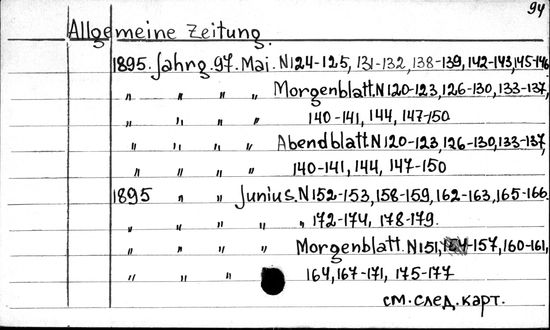 94
Allgemeine Zeitung.
1895. Jahrg. 97. Mai. N124-125, 131-132, 138-139, 142-143, 145-146
" " " " Morgenblatt. N120-123, 126-130, 133-137,
" " " " 140-141, 144, 147-150
" " " " Abendblatt. N120-123, 126-130, 133-137,
" " " " 140-141, 144, 147-150
1895 " " Junius. N152-153, 158-159, 162-163, 165-166.
" " " " " 172-174, 178-179.
" " " " Morgenblatt. N151, -157, 160-161,
" " " 164, 167-171, 175-177
см. след. карт.